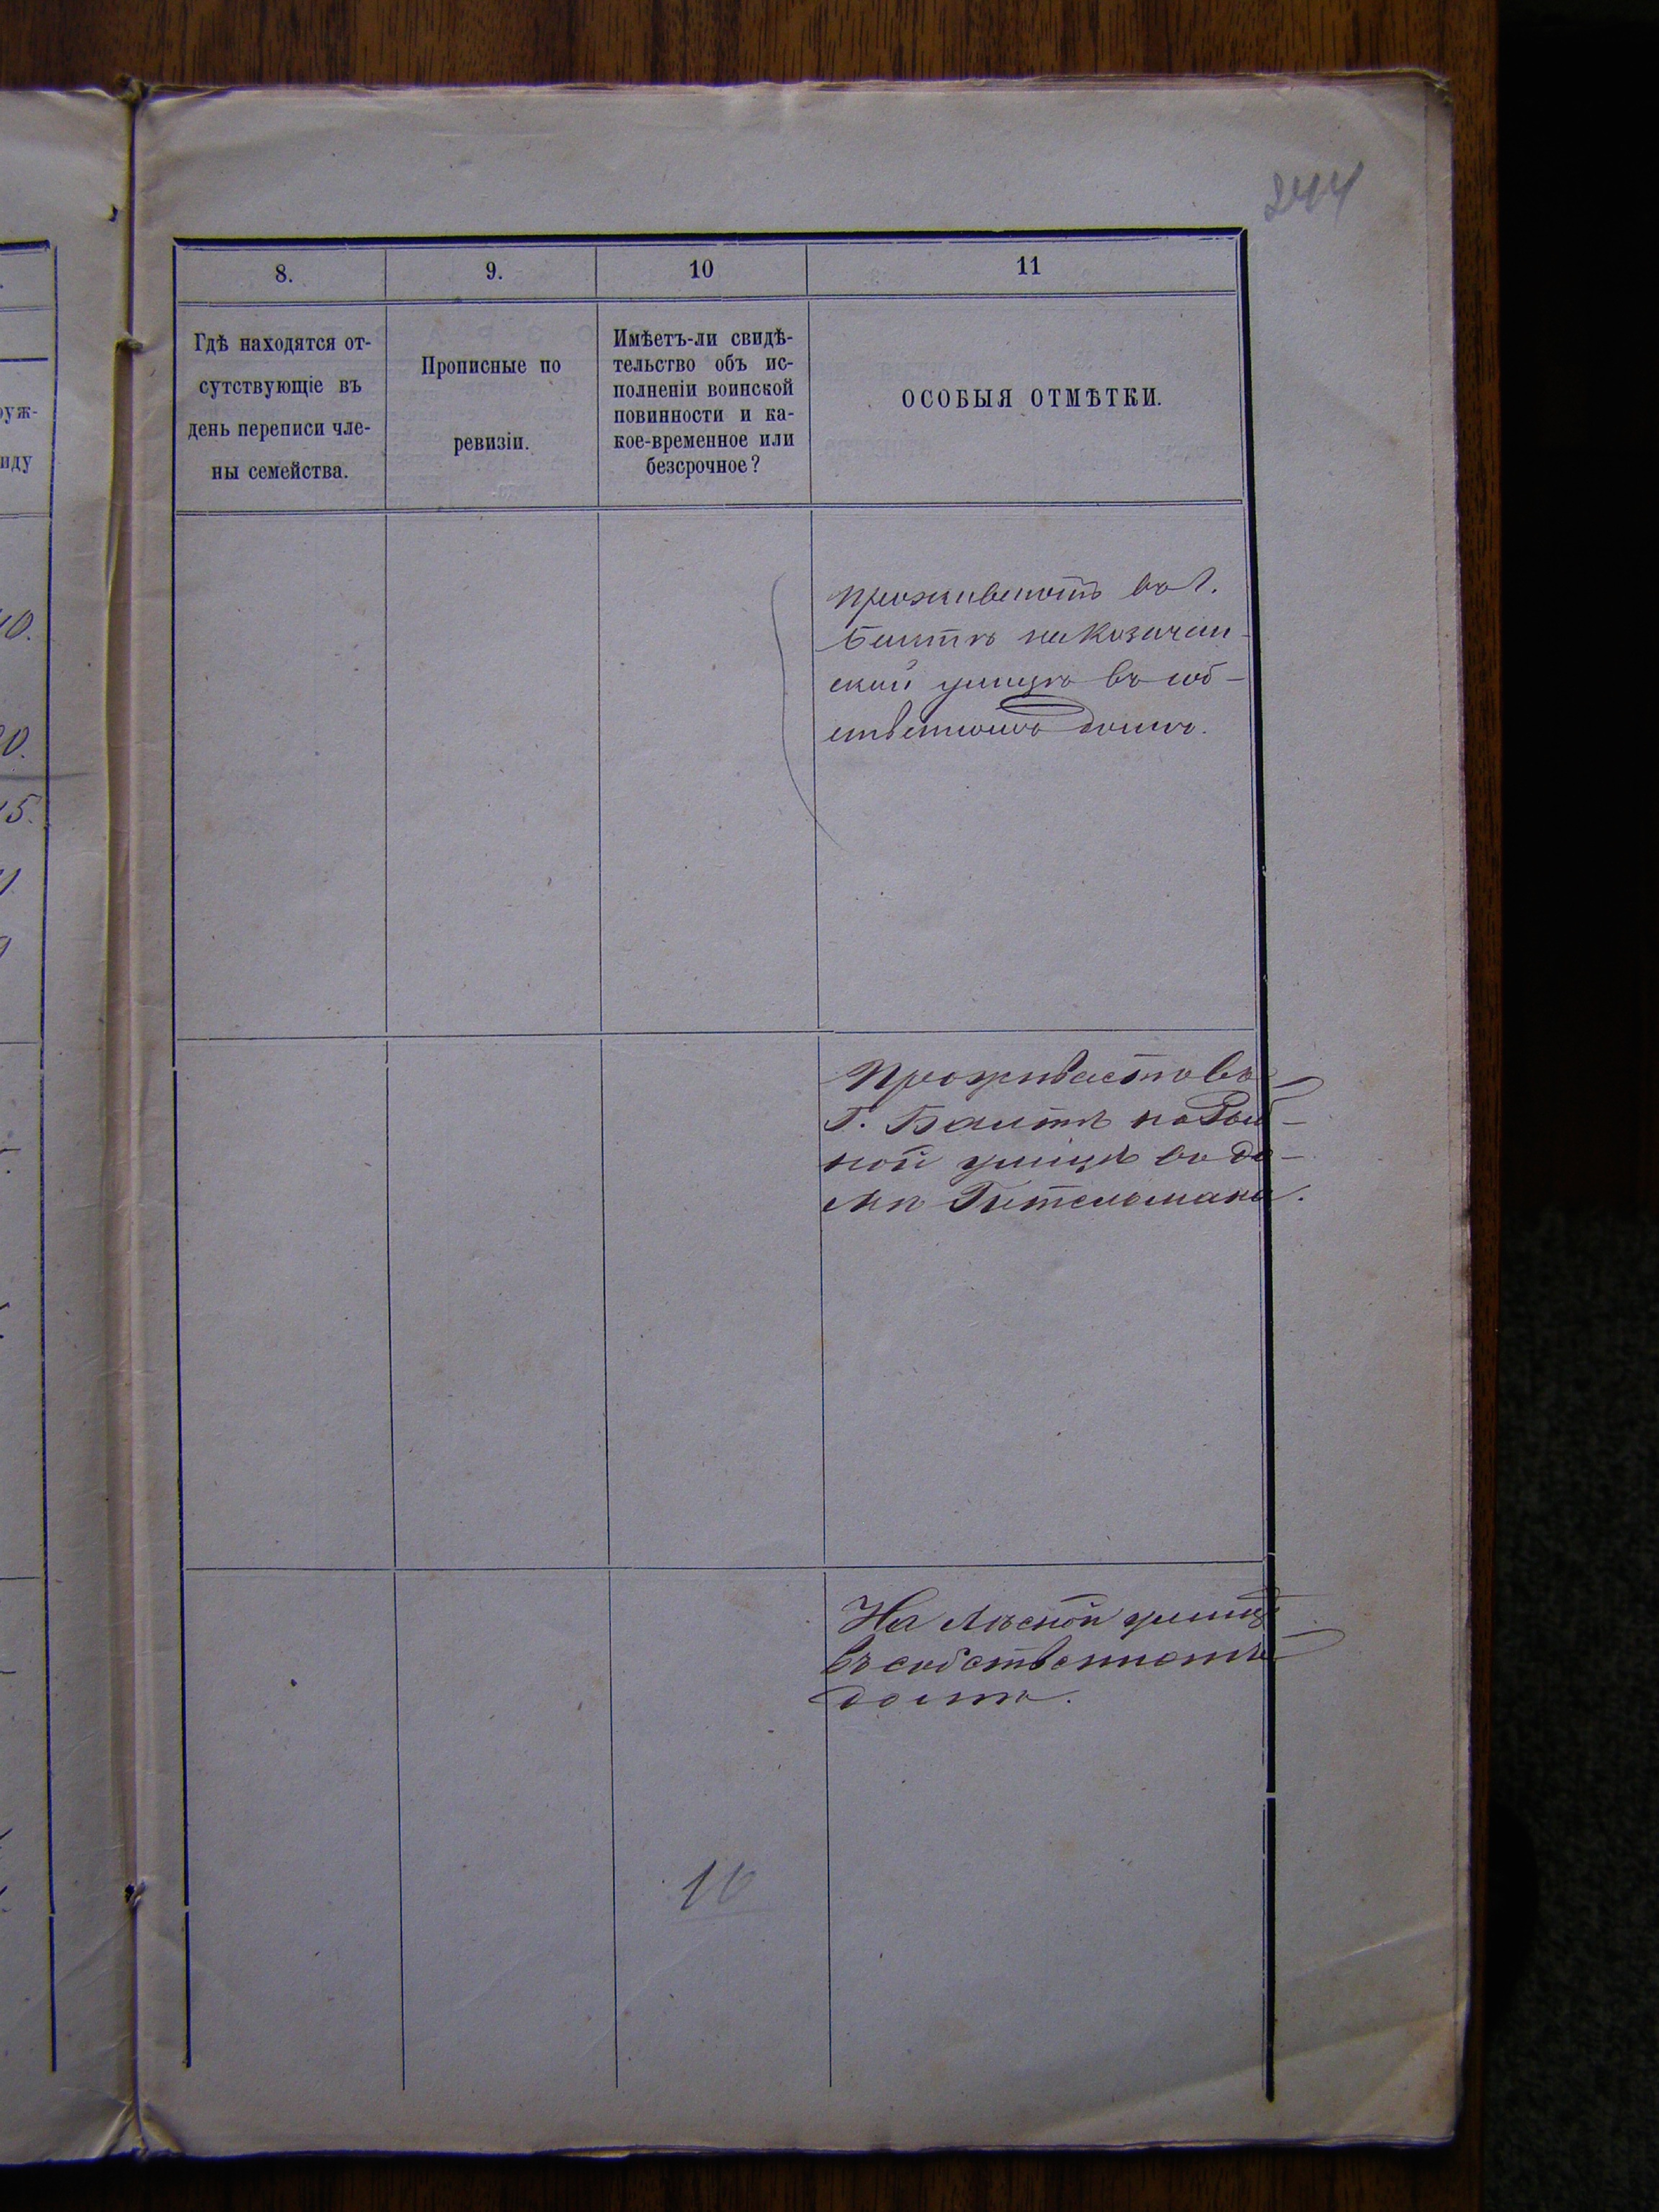 244
8.
9.
10
11
Гдѣ находятся от-
сутствующіе въ
день переписи чле-
ны семейства.
Прописные по
ревизіи.
Имѣетъ-ли свидѣ-
тельство объ ис-
полненіи воинской
повинности и ка-
кое-временное или
безсрочное?
ОСОБЫЯ ОТМѢТКИ.
Проживаютъ въ г.
Балтѣ на Казачин-
ской улицѣ въ соб-
ственномъ домѣ.
Проживаетъ въ
Г. Балтѣ на Рыб-
ной улицѣ въ до-
мѣ Гительмана.
На Лѣсной улицѣ
въ собственномъ
домѣ.
руж-
иду
10.
15.